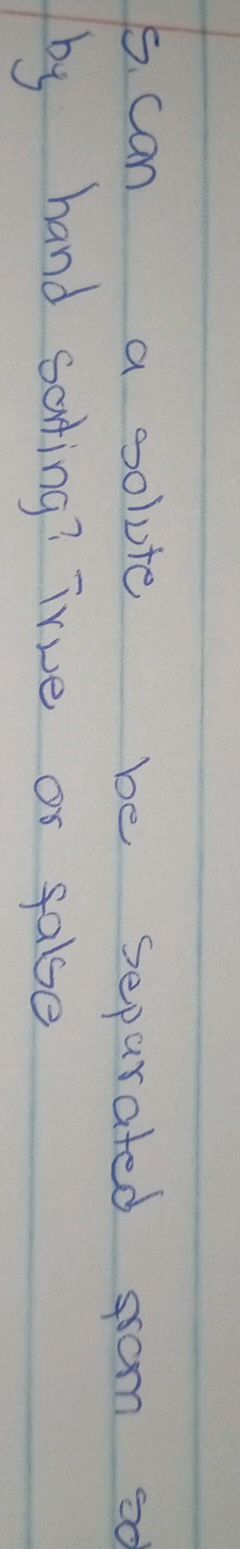 5. Can a solute be separated from so
by hand sorting? True or false